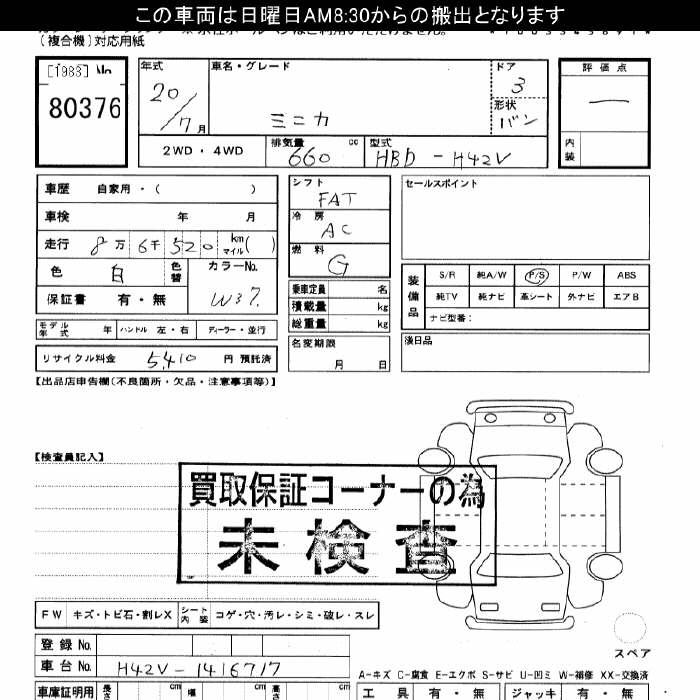 この車両は日曜日AM8:30からの搬出となります
(複合機)対応用紙
[1983] No
80376
年式
20/7 月
車名・グレード
ミニカ
ドア
3
形状
バン
評価点
―
内装
2WD・4WD
排気量
660 cc
型式
HBD-H42V
車歴 自家用・( )
車検 年 月
走行 8万 6千 520 km マイル( )
色 白 色替
カラーNo.
W37.
保証書 有・無
モデル年式 年 ハンドル 左・右 ディーラー・並行
リサイクル料金 5,410 円 預託済
シフト
FAT
冷房
AC
燃料
G
乗車定員 名
積載量 kg
総重量 kg
名変期限
月 日
セールスポイント
装備品
S/R 純A/W P/S P/W ABS
純TV 純ナビ 革シート 外ナビ エアB
ナビ型番:
減日品
【出品店申告欄(不良箇所・欠品・注意事項等)】
【検査員記入】
買取保証コーナーの為
未検査
FW キズ・トビ石・割レX シート内装 コゲ・穴・汚レ・シミ・破レ・スレ
スペア
登録No.
車台No. H42V-1416717
A-キズ C-腐食 E-エクボ S-サビ U-凹ミ W-補修 XX-交換済
車庫証明用 長さ cm 幅 cm 高さ cm
工具 有・無 ジャッキ 有・無